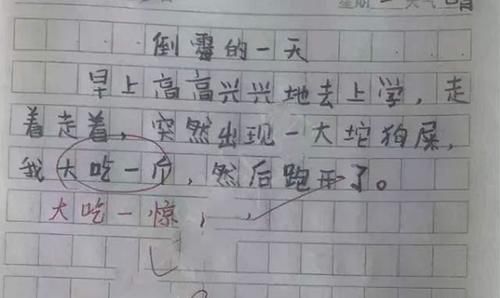 星期一 天气晴
倒霉的一天
早上高高兴兴地去上学，走
着走着，突然出现一大坨狗屎，
我大吃一斤，然后跑开了。
大吃一惊，